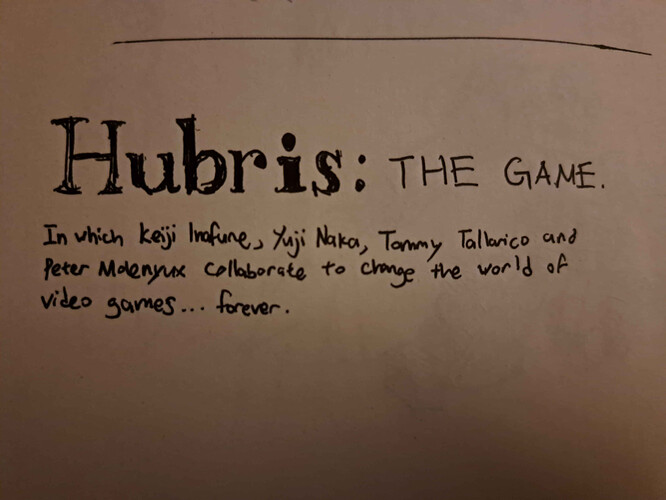 Hubris: THE GAME.
In which Keiji Inafune, Yuji Naka, Tommy Tallarico and
Peter Molenyux collaborate to change the world of
video games... forever.